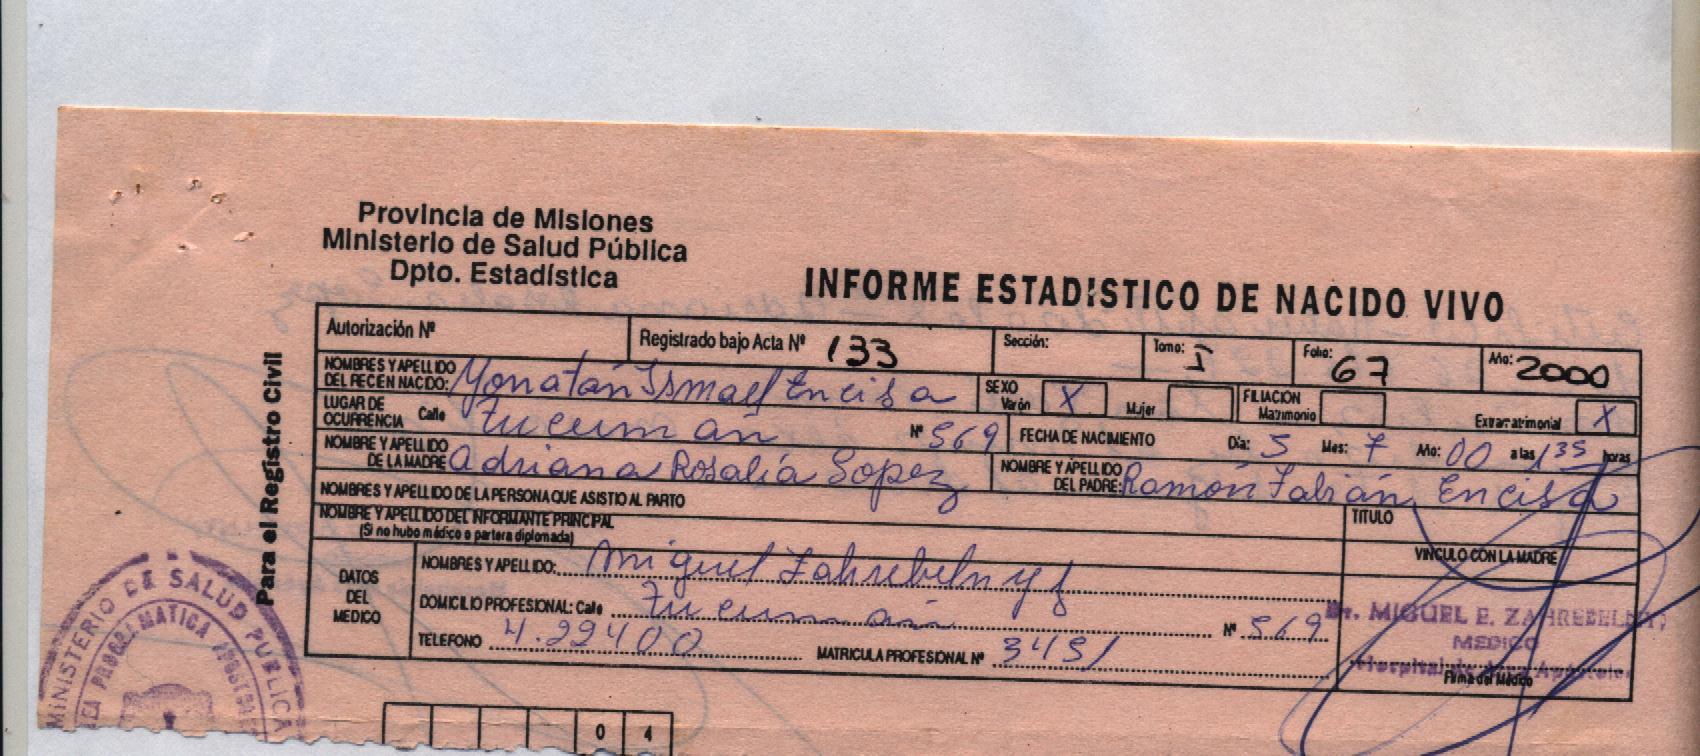 Provincia de Misiones
Ministerio de Salud Pública
Dpto. Estadística
INFORME ESTADISTICO DE NACIDO VIVO
Para el Registro Civil
Autorización Nº Registrado bajo Acta Nº 133 Sección: Tomo: I Folio: 67 Año: 2000
NOMBRES Y APELLIDO DEL RECEN NACIDO: Yonatán Ismael Encisa SEXO Varón X Mujer FILIACION Matrimonio Extramatrimonial X
LUGAR DE OCURRENCIA Calle Tucumán Nº 569 FECHA DE NACIMIENTO Día: 5 Mes: 7 Año: 00 a las 1 35 horas
NOMBRE Y APELLIDO DE LA MADRE Adriana Rosalía Lopez NOMBRE Y APELLIDO DEL PADRE: Ramón Fabián Encisa
NOMBRES Y APELLIDO DE LA PERSONA QUE ASISTIO AL PARTO TITULO
NOMBRE Y APELLIDO DEL INFORMANTE PRINCIPAL
(Si no hubo médico o partera diplomada) VINCULO CON LA MADRE
DATOS DEL MEDICO
NOMBRES Y APELLIDO: Miguel Zahrebelnyj
DOMICILIO PROFESIONAL: Calle Tucumán Nº 569
TELEFONO 4.22400 MATRICULA PROFESIONAL Nº 3431
Dr. MIGUEL E. ZAHREBELNYJ
MEDICO
Hospital de Area Apóstoles
Firma del Médico
MINISTERIO DE SALUD PUBLICA
PROGRAMATICA
0 4